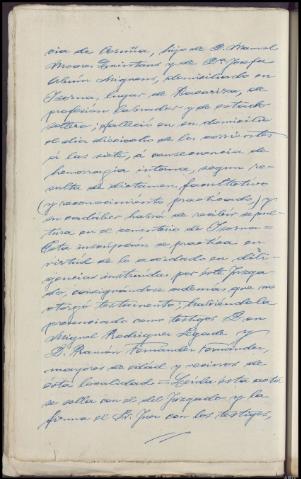 cia de Coruña, hijo de D. Manuel
Moares Quintans y de Dª Josefa
domiciliado en
Isorna, lugar de de
profesión labrador y de estado
soltero; falleció en su domicilio
el día dieciocho de los corrientes
á las siete, á consecuencia de
hemorragia interna, segun re-
sulta de dictamen facultativo
(y reconocimiento practicado) y
su cadáver habrá de recibir sepul-
tura en el cementerio de Isorna=
Esta inscripción se practica en
virtud de lo acordado en dili-
gencias instruidas por este Juzga-
do, consignándose además, que no
otorgó testamento; habiéndola
presenciado como testigos Don
Miguel Rodriguez y
D. Ramón Fernandez Fernandez,
mayores de edad y vecinos de
esta localidad=Leida esta acta
se sella con el del Juzgado y la
firma el Sr. Juez con los testigos,